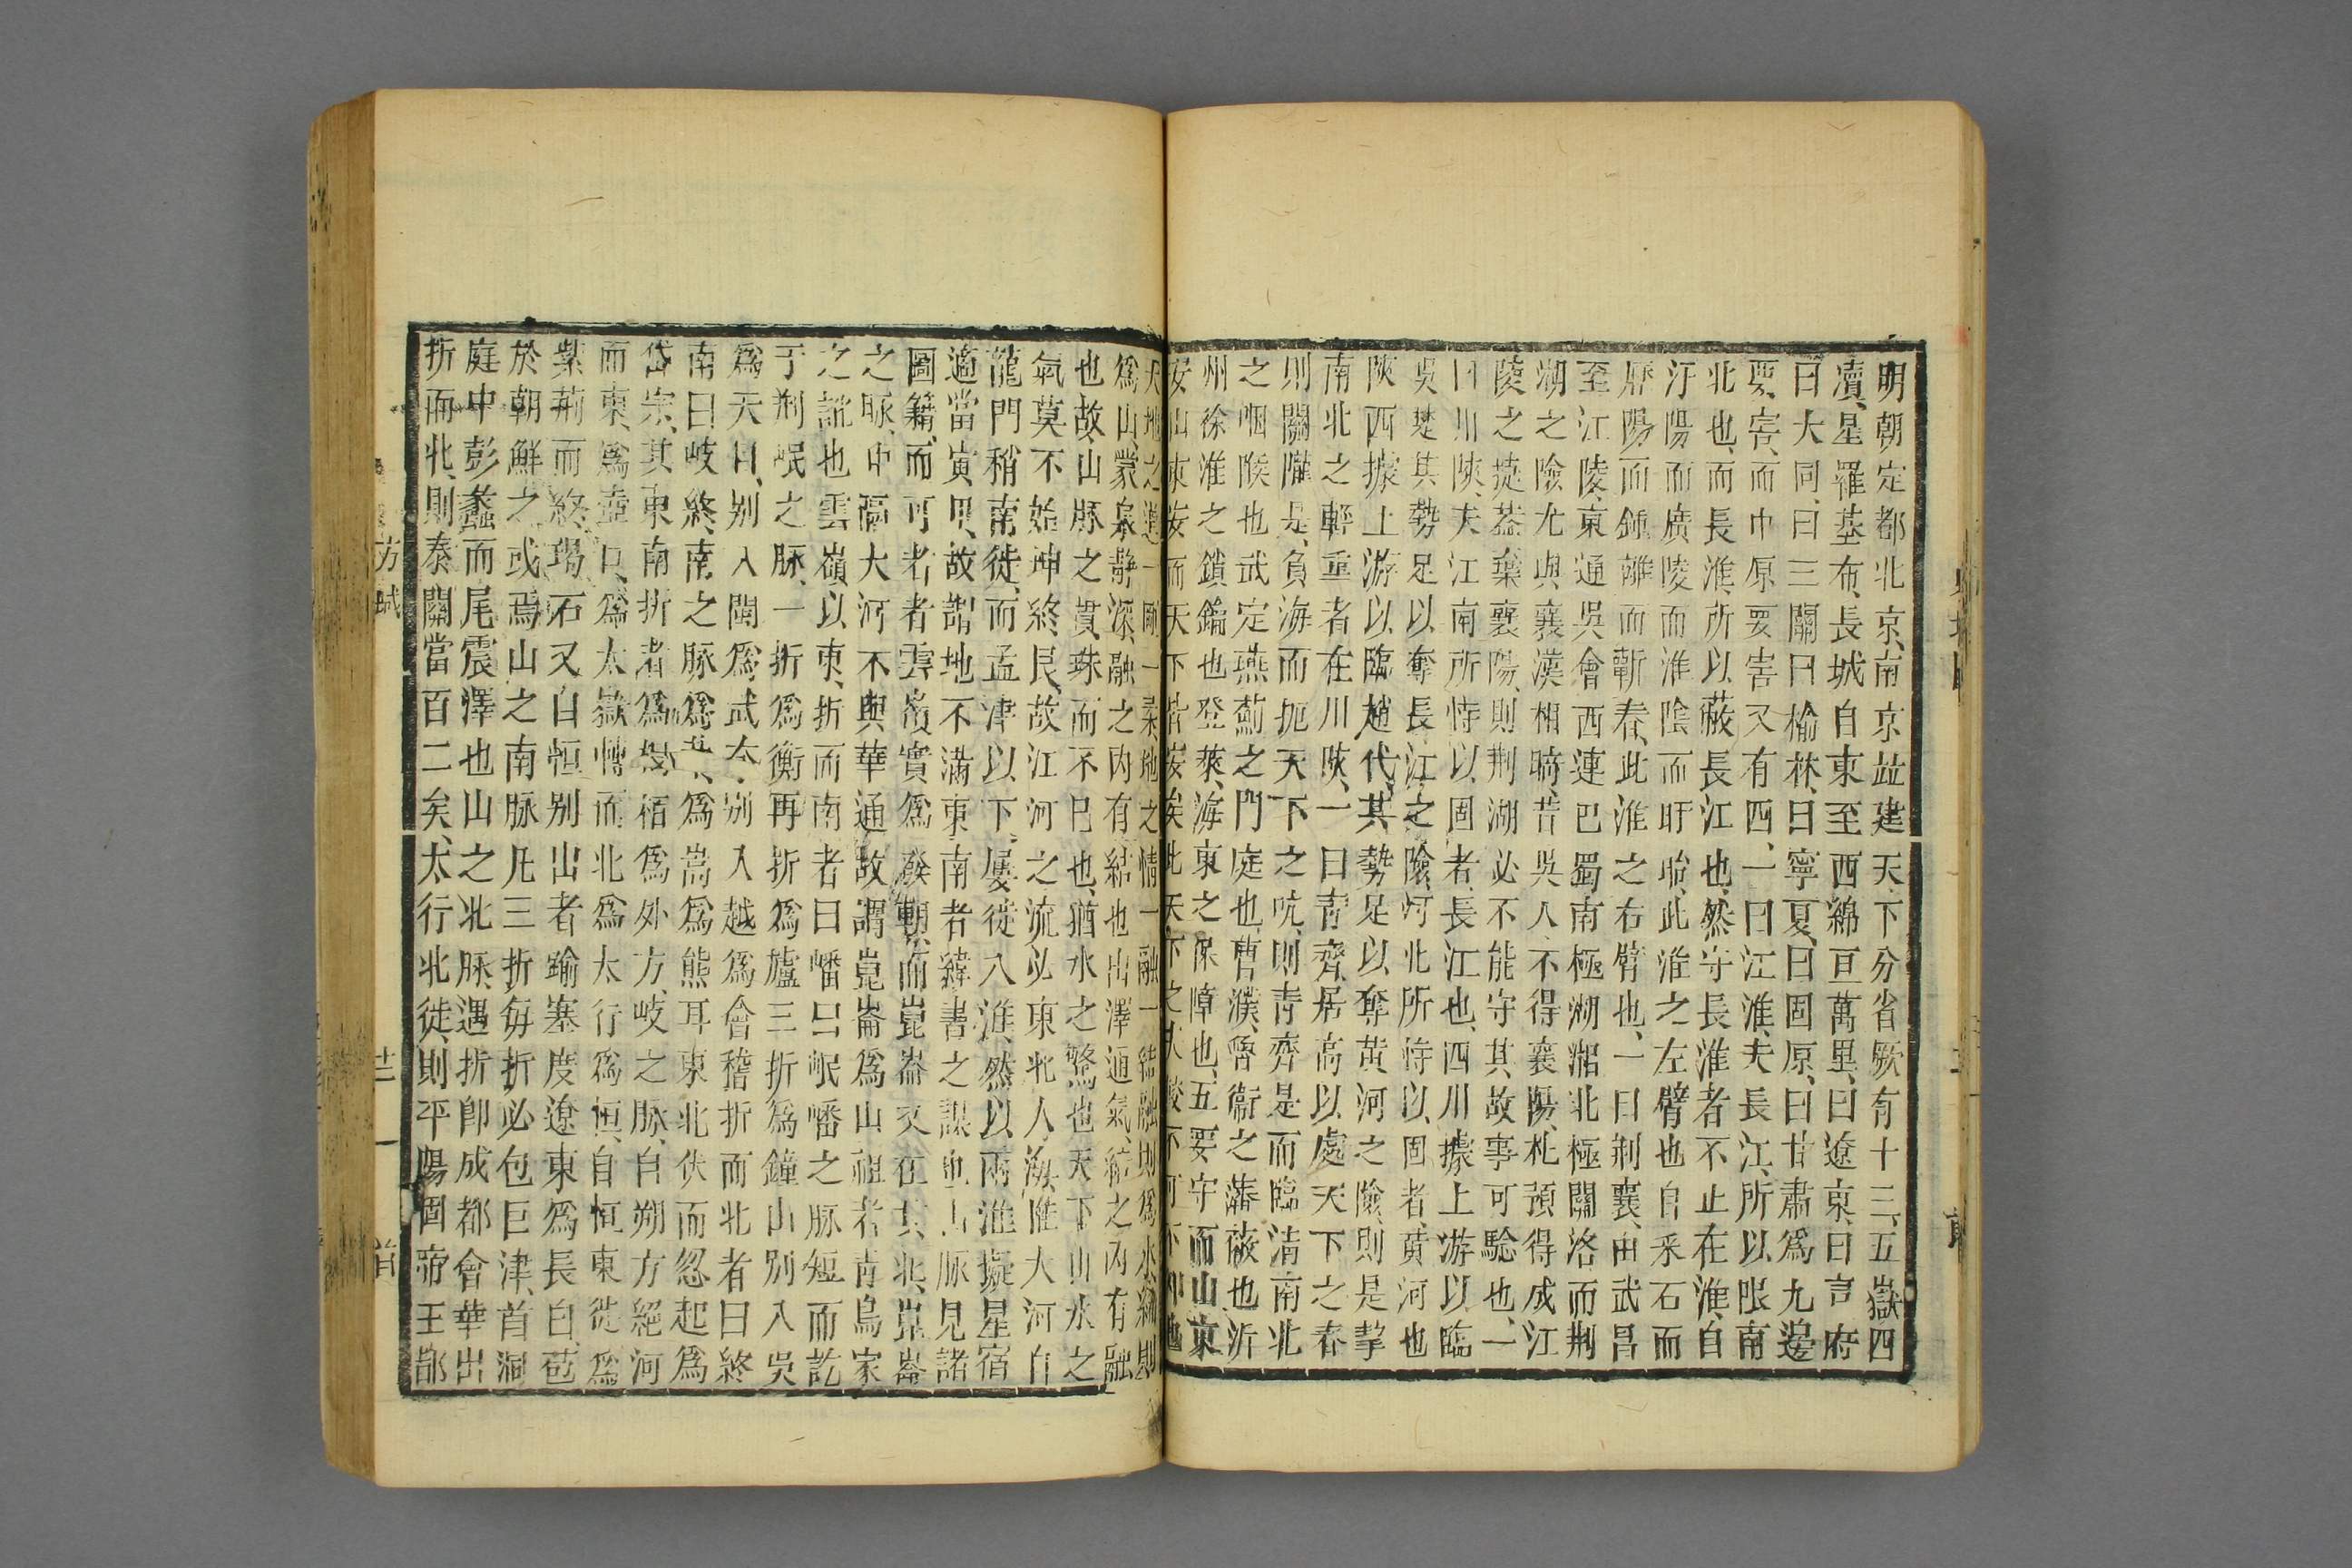 明朝定都北京、南京並建、天下分省厥有十三、五嶽四
瀆、星羅棊布、長城自東至西綿亘萬里、曰遼京、曰宣府
曰大同、曰三關曰榆林、曰寧夏、曰固原、曰甘肅爲九邊
要害、而中原要害又有四、一曰江淮、夫長江、所以限南
北也、而長淮、所以蔽長江也、然守長淮者不止在淮、自
汙陽而廣陵而淮陰而盱眙、此淮之左臂也自釆石而
歷陽而鍾離而蘄春、此淮之右臂也、一曰荆襄、由武昌
至江陵、東通吳會西連巴蜀南極湖湘北極關洛而荆
湖之險尤與襄漢相、昔吳人不得襄陽、杜預得成江
陵之捷、葢棄襄陽、則荆湖必不能守其故事可騐也、一
曰川陝、夫江南所恃以固者、長江也、四川據上游以臨
吳楚其勢足以奪長江之險、河北所恃以固者、黃河也
陝西據上游以臨趙代、其勢足以奪黃河之險、則是擧
南北之輕重者在川陝、一曰青齊、居高以處天下之春
則關隴是、負海而扼天下之吭、則青齊是而臨清南北
之咽喉也武定燕薊之門庭也、曹濮、魯衞之藩蔽也沂
州徐淮之鎖鑰也登萊、海東之保障也、五要守而山東
安山東安而天下皆安矣此天下之大不可不知也
天地之道一剛一柔地之情一融一結融則爲水結則
爲山、蒙泉靜深、融之内有結也山澤通氣、結之内有融
也故山脉之貫珠而不已也、猶水之也天下山水之
氣莫不始坤終艮、故江河之流必東北人海、惟大河自
龍門稍南徙、而孟津以下、屢徙入淮、然以兩淮擬星宿
適當寅艮、故謂地不滿東南者緯書之誤也山脈見諸
圖籍、而可者者雲嶺實爲發朝、而崑崙又在其北、崑崙
之脉、中隔大河不與華通故謂崑崙爲山祖者靑烏家
之說也雲嶺以東、折而南者曰嶓曰岷嶓之脉短而訖
于荆岷之脉、一折爲衡再折爲廬三折爲鐘山別入吳
爲天目、別入閩爲武夷、別入越爲會稽折而北者曰終
南曰岐終、南之脉爲華、爲嵩爲熊耳東北伏而忽起爲
岱宗、其東南折者爲桐栢爲外方、岐之脉、自朔方絕河
而東、爲壺口、爲太嶽轉而北爲太行爲恒、自恒東徙爲
紫荆而終碣石又自恒別出者踰塞度遼東爲長白、苞
於朝鮮之或焉山之南脉凡三折每折必包巨津、首洞
庭中彭蠡而尾震澤也山之北脉遇折卽成都會華出
折而北、則泰關當百二矣、太行北徙、則平陽固帝王都